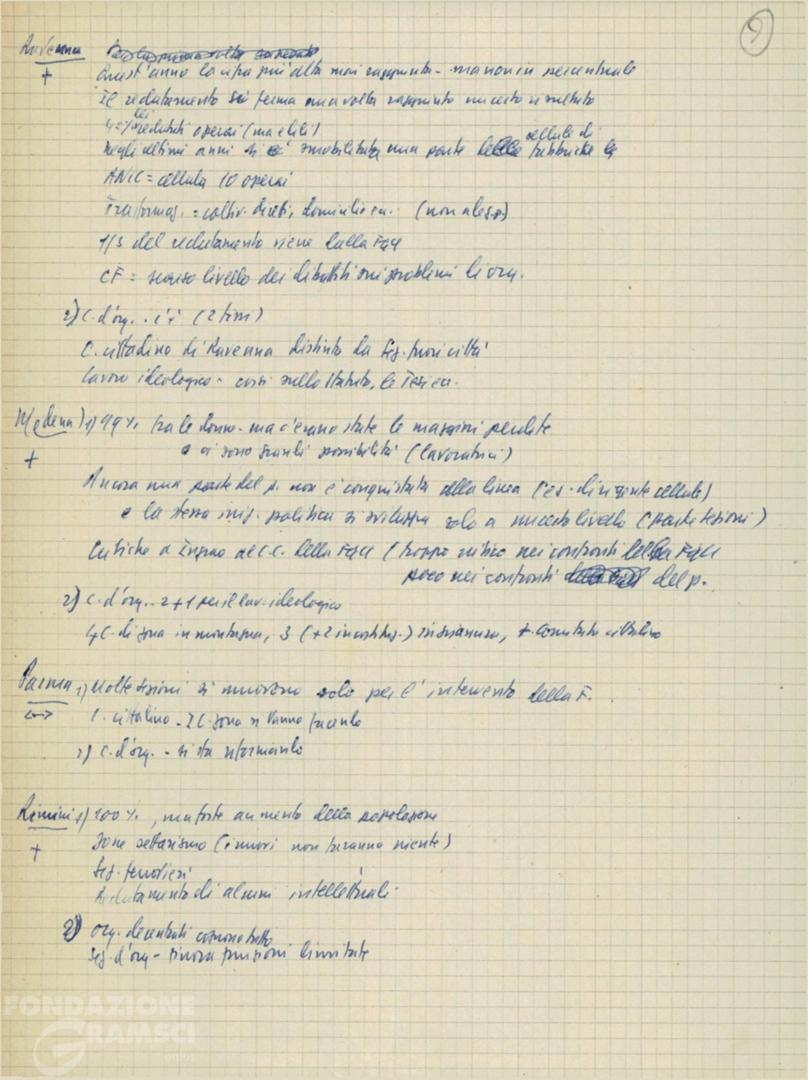 9
Ravenna
+
Quest'anno la cifra più alta mai raggiunta - ma non in percentuale
Il reclutamento si ferma una volta raggiunto un certo risultato
4% dei reclutati operai (ma edili)
Negli ultimi anni si è smobilitata una parte delle cellule di fabbrica
ANIC = cellula 10 operai
= coltiv. diretti, (non
1/3 del reclutamento viene dalla FGCI
CF = scarso livello dei dibattiti sui problemi di org.
2) C. d'org. - c'è (2 )
C. cittadino di Ravenna distinto da Seg. fuori città
Lavoro ideologico - corsi sullo Statuto, le Tesi ecc.
Modena 1) 99% tra le donne - ma c'erano state le maggiori perdite
+
e ci sono grandi possibilità (lavoratrici)
Ancora una parte del p. non è conquistata alla linea (es. dirigente cellule)
e la stessa iniz. politica si sviluppa solo a un certo livello (anche sezioni)
Critiche a al C.C. della FGCI (troppo critico nei confronti della FGCI
poco nei confronti del p.
2) C. d'org. - 2 + 1 per il lav. ideologico
4 C. di zona in montagna, 3 (+ 2 in costituz.) in pianura, + Comitato cittadino
Parma 1) Molte sezioni si muovono solo per l'intervento della F.
C. cittadino - 2 C. zona si vanno facendo
2) C. d'org. - si sta riformando
Rimini 1) 100%, ma forte aumento della popolazione
+
Zone settarismo (i nuovi non faranno niente)
Seg.
Reclutamento di alcuni intellettuali.
2) Org. decentrati
Seg. d'org - finora funzioni limitate
FONDAZIONE
GRAMSCI